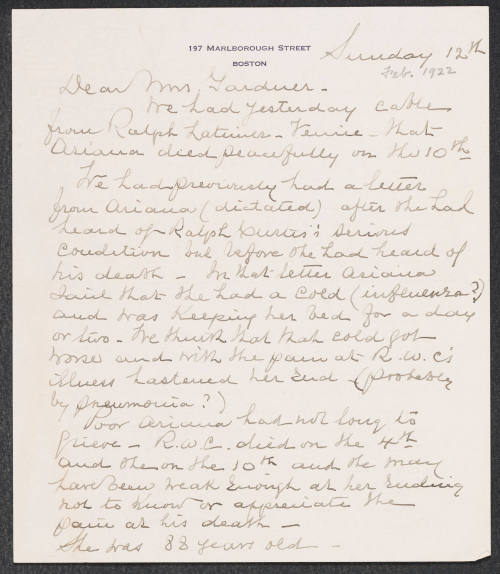 197 MARLBOROUGH STREET
BOSTON
Sunday 12th
Feb. 1922
Dear Mrs Gardner -
We had yesterday cable
from Ralph Latimer - Venice - that
Ariana died peacefully on the 10th
We had previously had a letter
from Ariana (dictated) after she had
heard of Ralph Curtis's serious
condition but before she had heard of
his death - In that letter Ariana
said that she had a cold (influenza?)
and was keeping her bed for a day
or two - We think that that cold got
worse and with the pain at R.W.C's
illness hastened her end - (probably
by pneumonia?)
Poor Ariana had not long to
grieve - R.W.C. died on the 4th
and she on the 10th and she may
have been weak enough at her ending
not to know or appreciate the
pain at his death -
She was 88 years old -